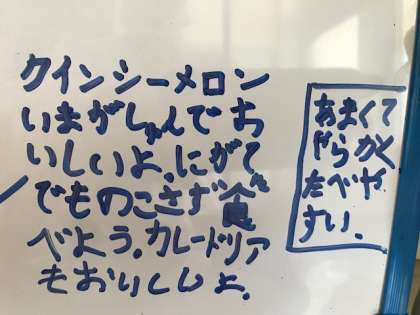 クインシーメロン
いまがしゅんでお
いしいよ、にがて
でものこさず食
べよう。カレードリア
もおいしいよ。
あまくて
やらかく
たべや
すい。